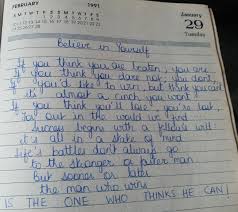 FEBRUARY 1991
January
29
Tuesday
Believe in Yourself
If you think you are beaten, you are
If you think you dare not, you don't,
If you'd like to win, but think you can't
it's almost a cinch you won't
If you think you'll lose, you're lost,
For out in the world we find
Success begins with a fellow's will
it's all in a state of mind
Life's battles don't always go
to the stronger or faster man
But sooner or later
the man who wins
IS THE ONE WHO THINKS HE CAN!